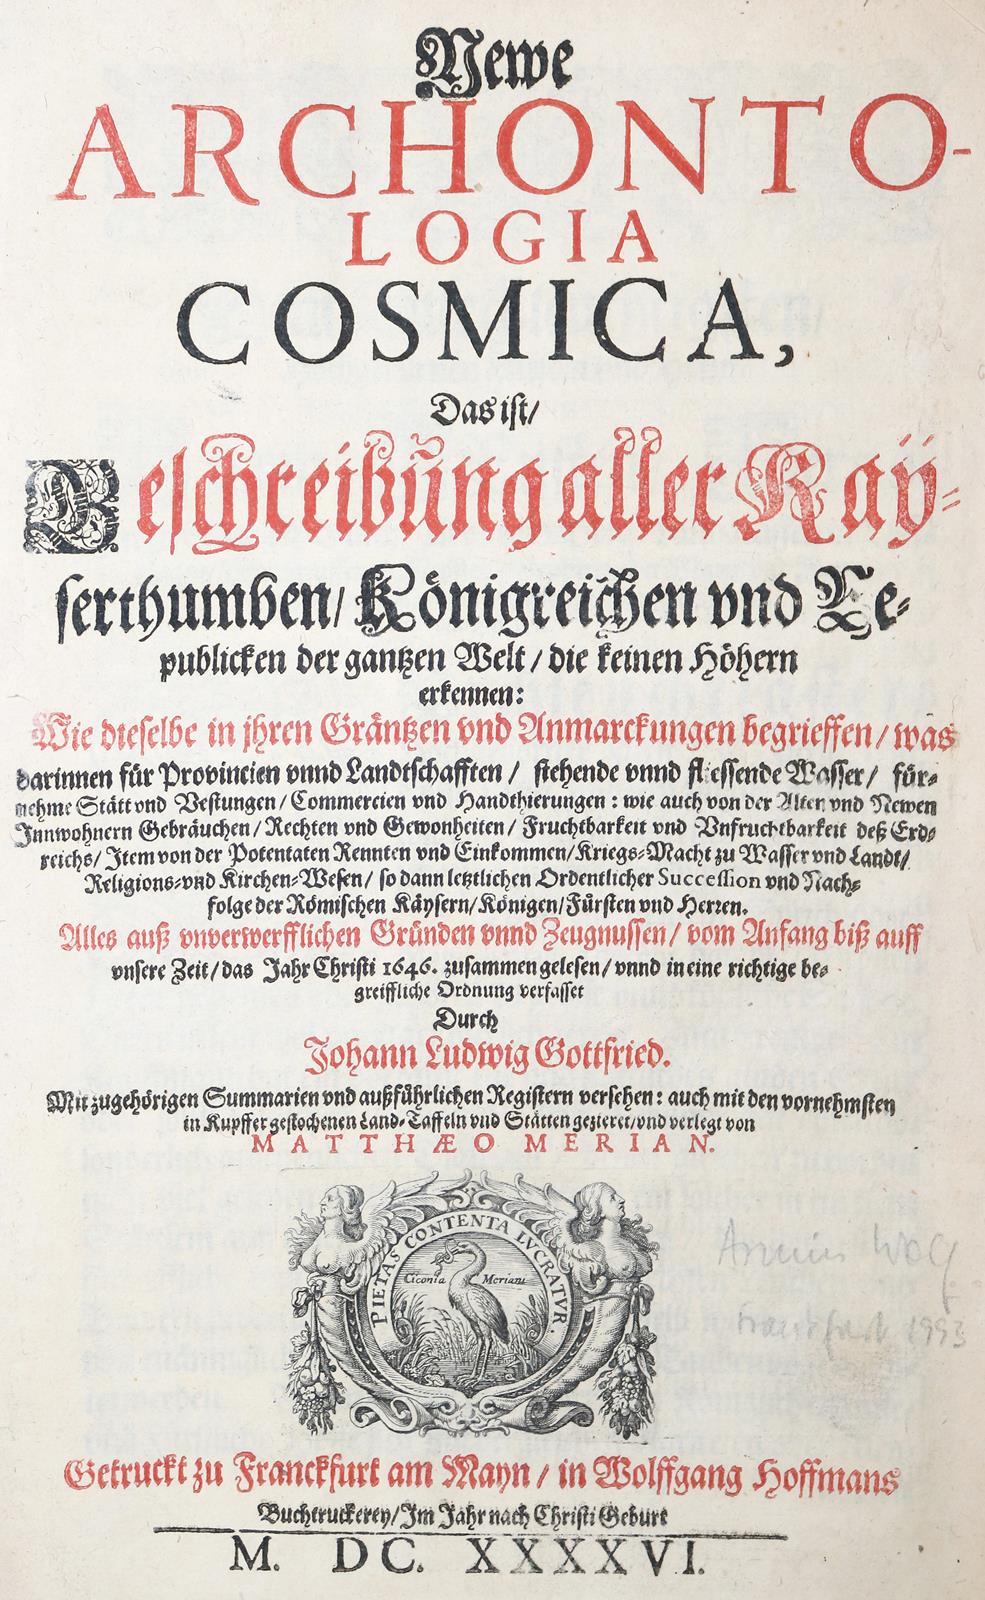 Newe
ARCHONTO-
LOGIA
COSMICA,
Das ist/
Beschreibũng aller Kaÿ-
serthumben/ Königreichen vnd Re-
publicken der gantzen Welt/ die keinen Höhern
erkennen:
Wie dieselbe in jhren Gräntzen vnd Anmarckungen begrieffen/ was
darinnen für Provincien vnnd Landtschafften/ stehende vnnd fliessende Wasser/ für-
nehme Stätt vnd Vestungen/ Commercien vnd Handthierungen: wie auch von der Alten vnd Newen
Innwohnern Gebräuchen/ Rechten vnd Gewonheiten/ Fruchtbarkeit vnd Vnfruchtbarkeit deß Erd-
reichs/ Item von der Potentaten Rennten vnd Einkommen/ Kriegs-Macht zu Wasser vnd Landt/
Religions-vnd Kirchen-Wesen/ so dann letztlichen Ordentlicher Succession vnd Nach-
folge der Römischen Käysern/ Königen/ Fürsten vnd Herren.
Alles auß vnverwerfflichen Gründen vnnd Zeugnussen/ vom Anfang biß auff
vnsere Zeit/ das Jahr Christi 1646. zusammen gelesen/ vnnd in eine richtige be-
greiffliche Ordnung verfasset
Durch
Johann Ludwig Gottfried.
Mit zugehörigen Summarien vnd außführlichen Registern versehen: auch mit den vornehmsten
in Kupffer gestochenen Land-Taffeln vnd Stätten gezieret/ vnd verlegt von
MATTHÆO MERIAN.
PIETAS CONTENTA LVCRATVR.
Ciconia Meriani
Armin Wolf
Frankfurt 1993
Getruckt zu Franckfurt am Mayn/ in Wolffgang Hoffmans
Buchtruckerey/ Im Jahr nach Christi Geburt
M. DC. XXXXVI.